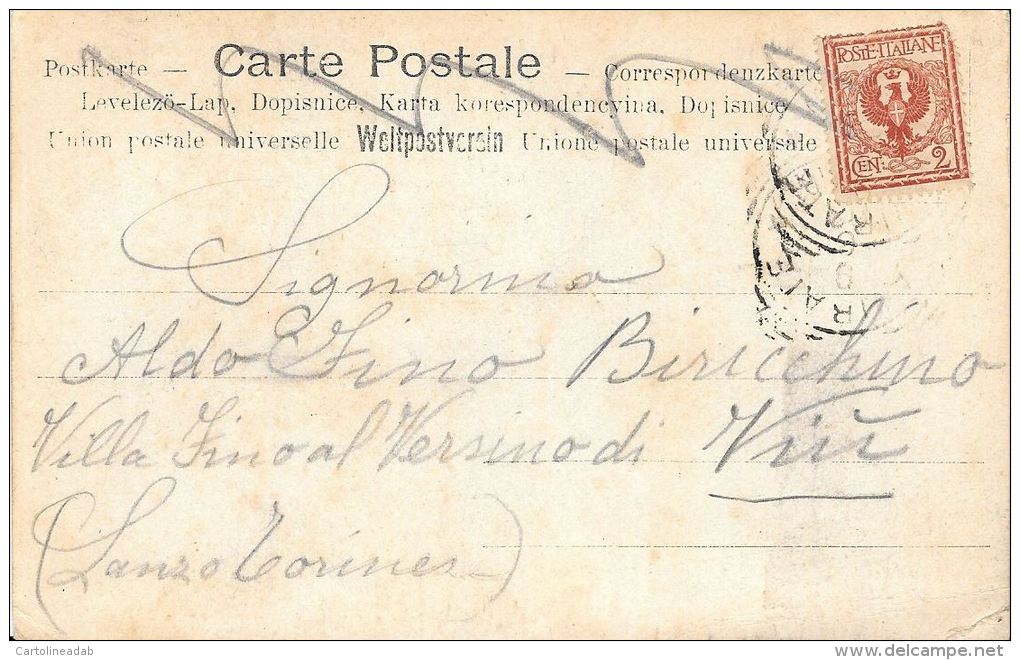 Carte Postale
Postkarte — — Correspondenzkarte
Levelező-Lap, Dopisnice, Karta korespondencyina, Dopisnice
Union postale universelle Weltpostverein Unione postale universale
POSTE·ITALIANE
CEN: 2
Signorino
Aldo Fino Biricchino
Villa Fino al Versino di Viù
(Lanzo Torinese)
Cartolineadab
www.delcampe.net